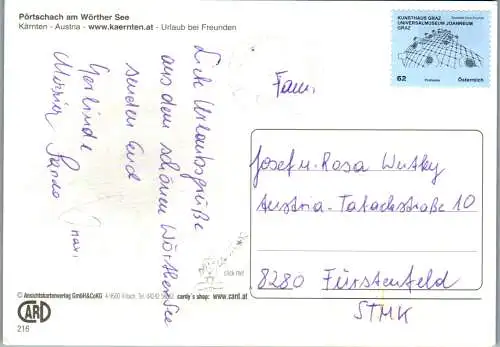 Pörtschach am Wörther See
Kärnten - Austria - www.kaernten.at - Urlaub bei Freunden
KUNSTHAUS GRAZ
UNIVERSALMUSEUM JOANNEUM
GRAZ
62
Österreich
Liebe Urlaubsgrüße
aus dem schönen Wörthersee
senden Euch
Gerlinde
Fam.
Josef u. Rosa Wutky
Austria-Tabackstraße 10
8280 Fürstenfeld
STMK
click me!
© Ansichtskartenverlag GmbH&CoKG A-9500 Villach, Tel. 04242 cardy´s shop: www.card.at
CARD
216